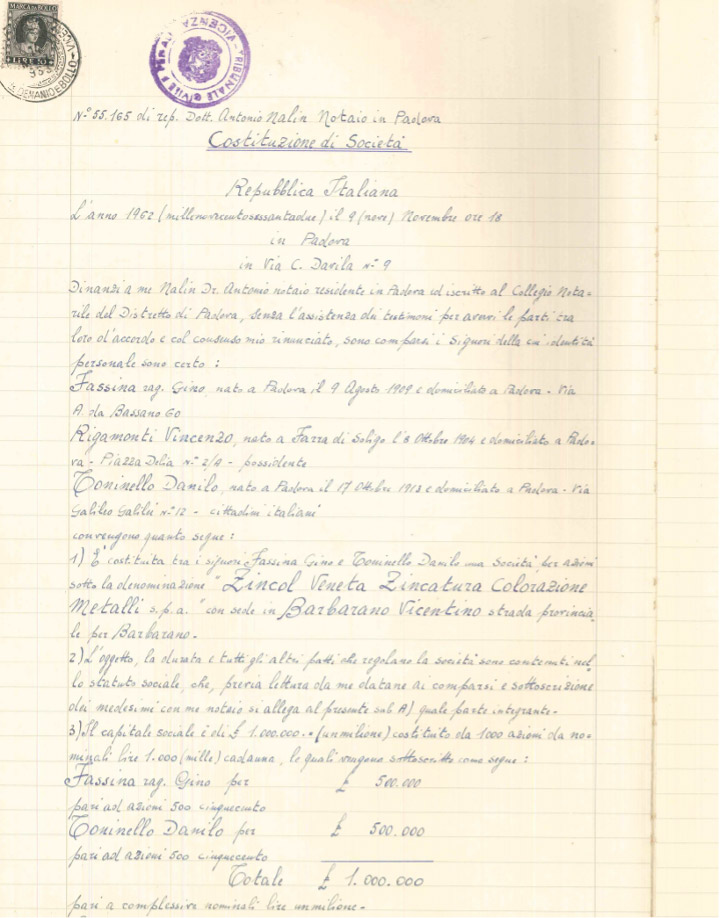 MARCA DA BOLLO
LIRE
DEMANIO E BOLLO
TRIBUNALE CIVILE E PENALE VICENZA
N° 55.165 di rep. Dott. Antonio Nalin Notaio in Padova
Costituzione di Società
Repubblica Italiana
L'anno 1962 (millenovecentosessantadue) il 9 (nove) Novembre ore 18
in Padova
in Via C. Davila n° 9
Dinanzi a me Nalin Dr. Antonio notaio residente in Padova ed iscritto al Collegio Nota=
rile del Distretto di Padova, senza l'assistenza dei testimoni per avervi le parti tra
loro d'accordo e col consenso mio rinunciato, sono comparsi i Signori della cui identità
personale sono certo :
Fassina rag. Gino, nato a Padova il 9 Agosto 1909 e domiciliato a Padova - Via
A. da Bassano 60
Rigamonti Vincenzo, nato a Farra di Soligo l'8 Ottobre 1904 e domiciliato a Pado=
va - Piazza Delia N° 2/A - possidente
Toninello Danilo, nato a Padova il 17 Ottobre 1913 e domiciliato a Padova - Via
Galileo Galilei n° 12 - cittadini italiani
convengono quanto segue :
1) E' costituita tra i signori Fassina Gino e Toninello Danilo una Società per azioni
sotto la denominazione " Zincol Veneta Zincatura Colorazione
Metalli s.p.a. " con sede in Barbarano Vicentino strada provincia=
le per Barbarano.
2) L'oggetto, la durata e tutti gli altri patti che regolano la società sono contenuti nel=
lo statuto sociale, che, previa lettura da me datane ai comparsi e sottoscrizione
dei medesimi con me notaio si allega al presente sub A) quale parte integrante.
3) Il capitale sociale è di £ 1.000.000.= (unmilione) costituito da 1000 azioni da no=
minali lire 1.000 (mille) cadauna, le quali vengono sottoscritte come segue :
Fassina rag. Gino per £ 500.000
pari ad azioni 500 cinquecento
Toninello Danilo per £ 500.000
pari ad azioni 500 cinquecento
Totale £ 1.000.000
pari a complessive nominali lire unmilione.